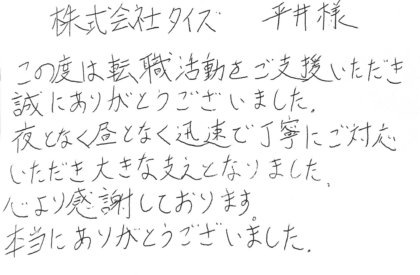 株式会社タイズ 平井様
この度は転職活動をご支援いただき
誠にありがとうございました。
夜となく昼となく迅速で丁寧にご対応
いただき大きな支えとなりました。
心より感謝しております。
本当にありがとうございました。